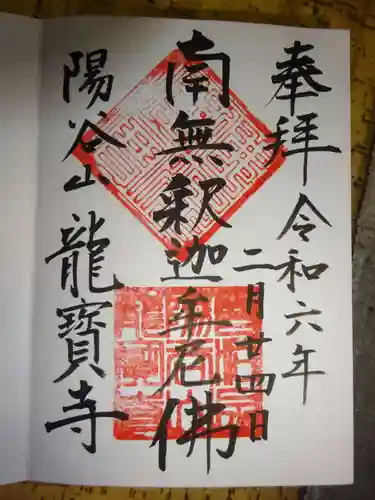 奉拝
令和六年
二月廿四日
南無釈迦牟尼佛
陽谷山
龍寶寺